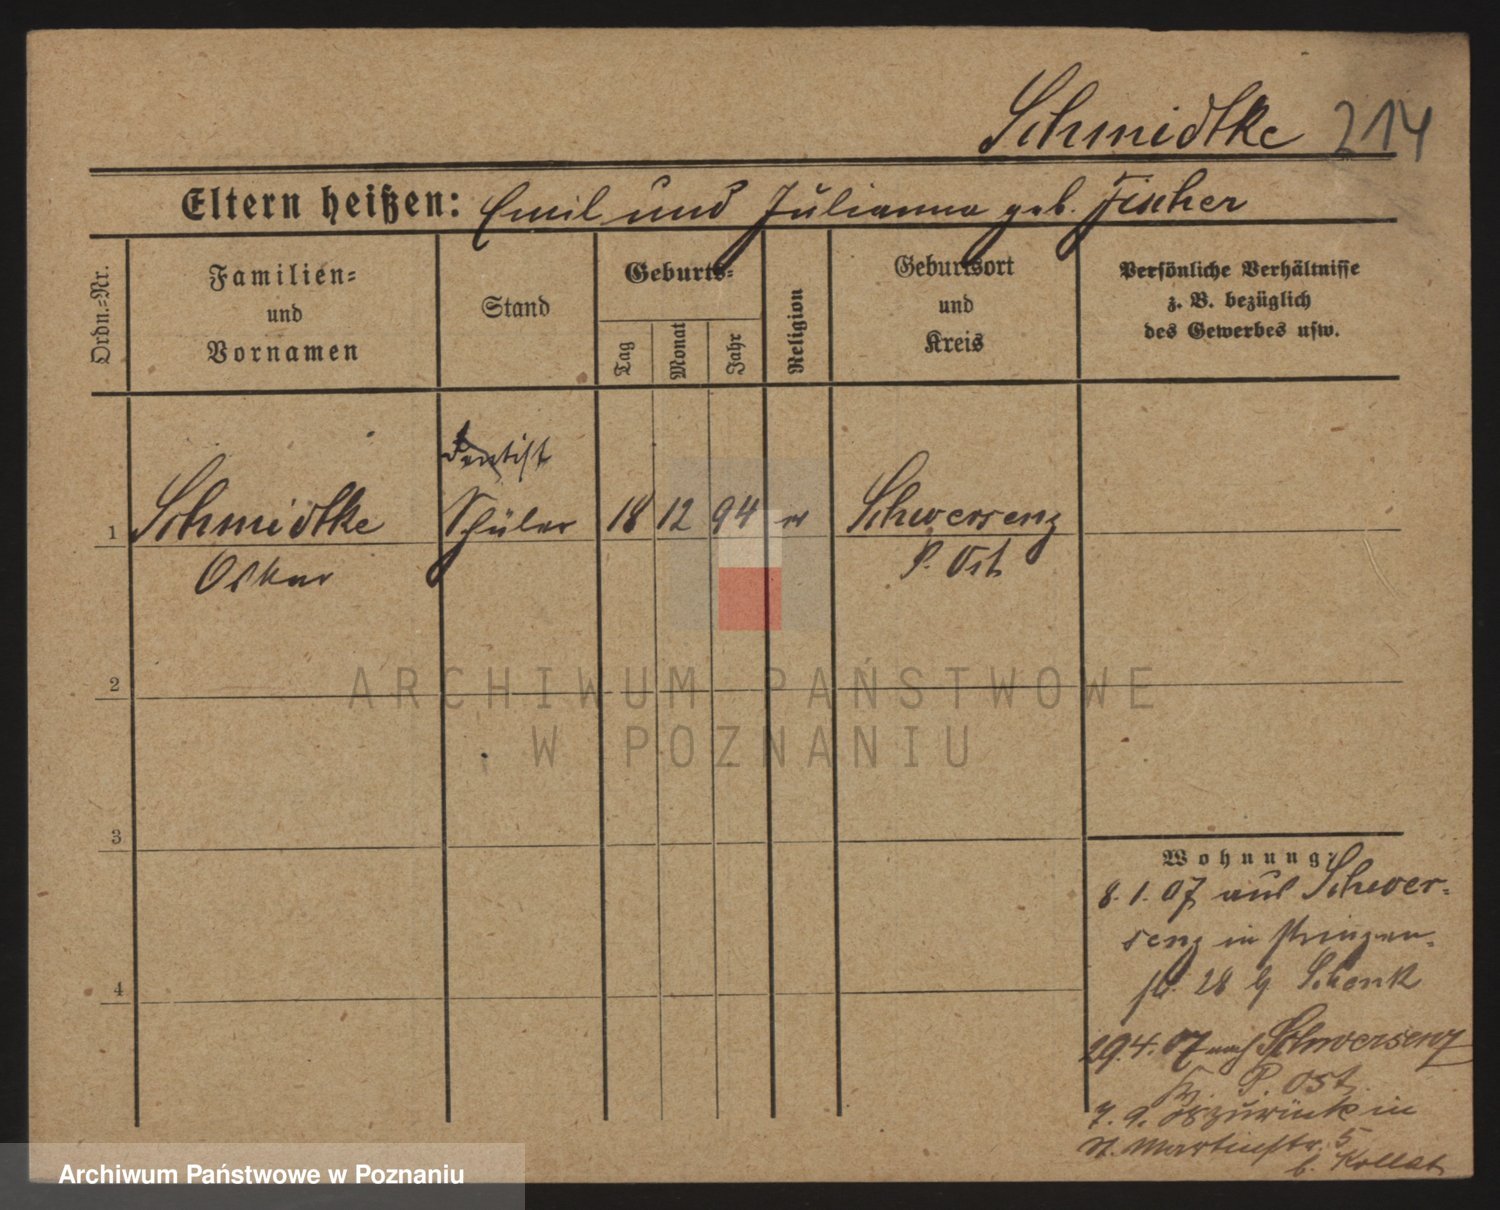 Schmidtke 214
Eltern heißen: Emil und Julianna geb. Fischer
Ordn.-Nr.
Familien-
und
Vornamen
Stand
Geburts-
Tag
Monat
Jahr
Religion
Geburtsort
und
Kreis
Persönliche Verhältnisse
z. B. bezüglich
des Gewerbes usw.
Dentist
1 Schmidtke Schüler 18 12 94 ev Schwersenz
Oskar P. Ost
2
3
4
ARCHIWUM PAŃSTWOWE
W POZNANIU
Wohnung:
8. 1. 07 aus Schwer-
senz in
28 Schenk
29. 4. 07 nach Schwersenz
P. Ost
7. 9. zurück in
St. Martinstr. 5
b. Kollat
Archiwum Państwowe w Poznaniu